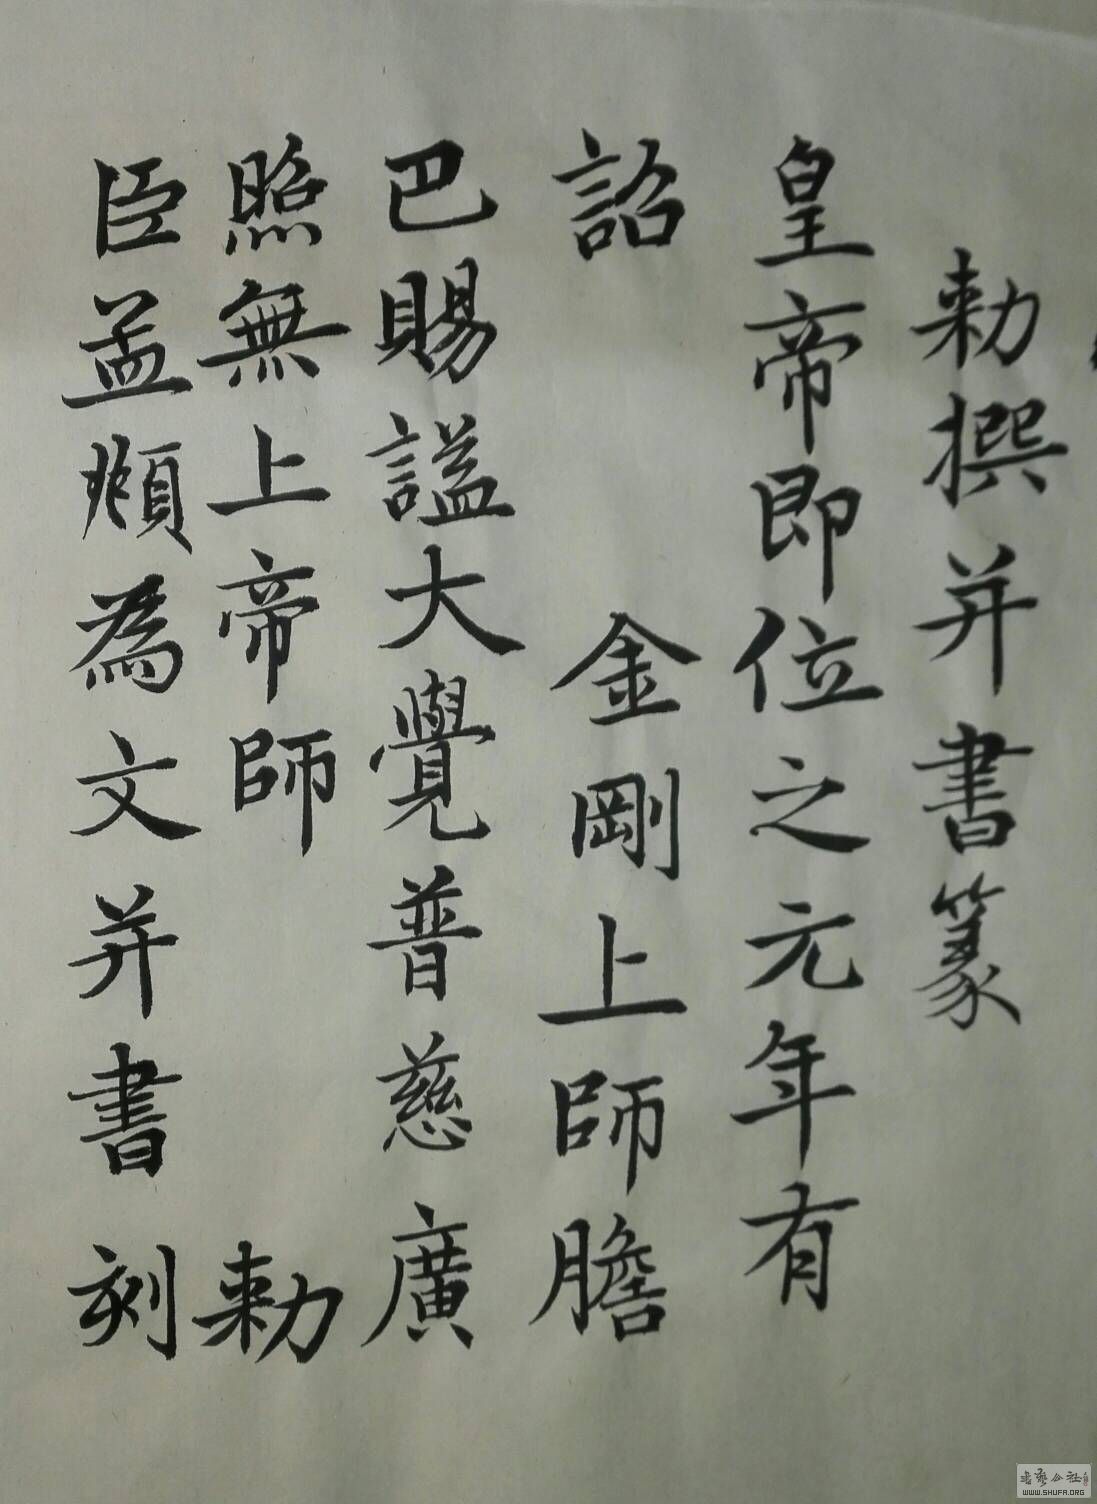 勅撰并書篆
皇帝即位之元年有
詔 金剛上師膽
巴賜謚大覺普慈廣
照無上帝師 勅
臣孟頫為文并書刻
书艺公社
WWW.SHUFA.ORG